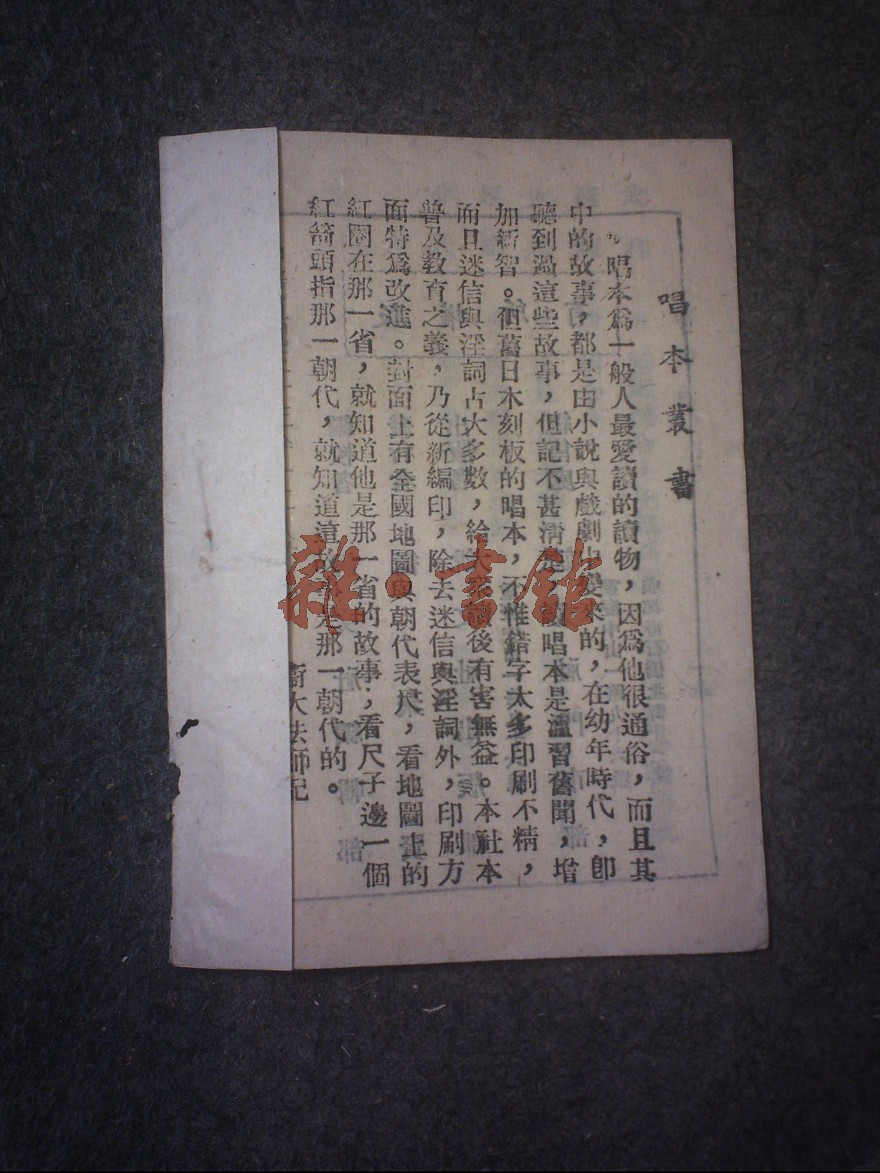 唱本叢書
唱本爲一般人最愛讀的讀物，因爲他很通俗，而且其
中的故事，都是由小說與戲劇中變來的，在幼年時代，卽
聽到過這些故事，但記不甚淸楚，唱本是溫習舊聞，增
加新智。但舊日木刻板的唱本，不惟錯字太多印刷不精，
而且迷信與淫詞占大多數，給大衆後有害無益。本社本
普及敎育之義，乃從新編印，除去迷信與淫詞外，印刷方
面特爲改進。對面上有全國地圖與朝代表尺，看地圖上的
紅圈在那一省，就知道他是那一省的故事；看尺子邊一個
紅箭頭指那一朝代，就知道這故事是那一朝代的。
大法師記
雜·書館